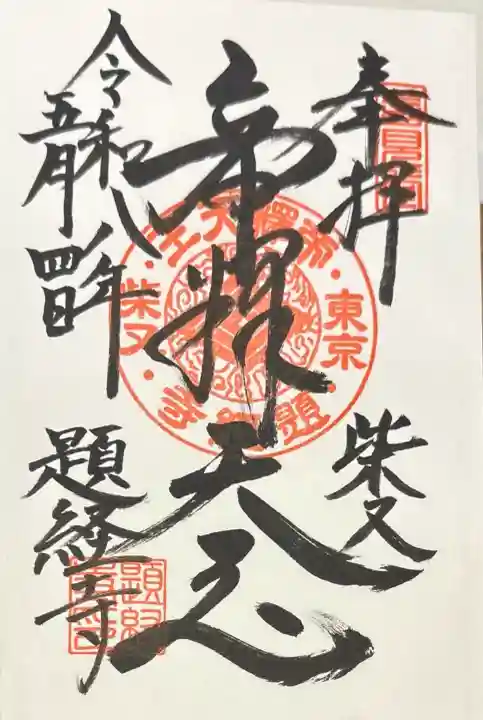 奉拝
柴又
帝釈天王
令和八年
五月四日
題経寺
帝釋天王
東京
柴又
題経寺